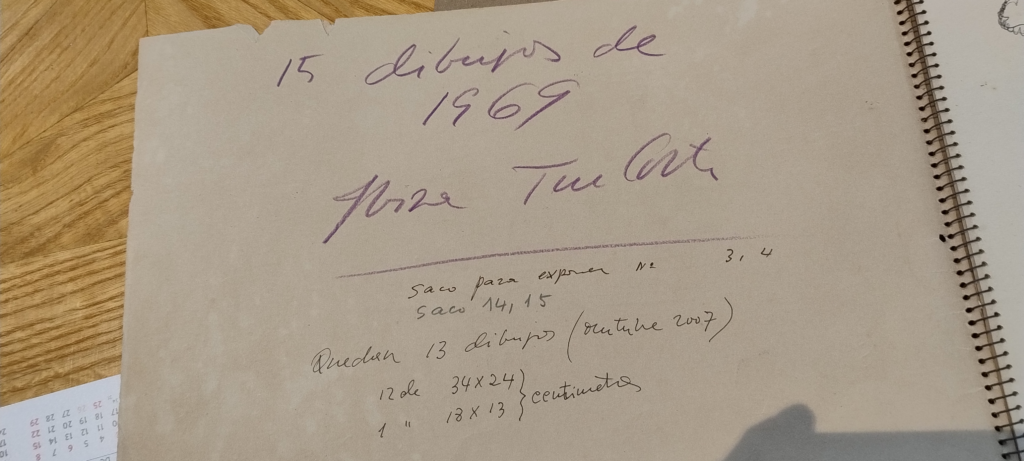 15 dibujos de
1969
Ibiza Tur Costa
saco para exponer Nº 3, 4
saco 14, 15
Quedan 13 dibujos (octubre 2007)
12 de 34x24 } centimetros
1 " 18x13